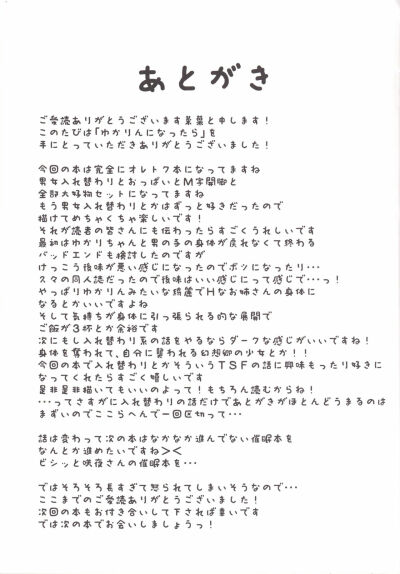 あとがき
ご愛読ありがとうございます景葉と申します！
このたびは「ゆかりんになったら」を
手にとっていただきありがとうございました！
今回の本は完全にオレトク本になってますね
男女入れ替わりとおっぱいとM字開脚と
全部大好物セットになってますね
もう男女入れ替わりとかはずっと好きだったので
描けてめちゃくちゃ楽しいです！
それが読者の皆さんにも伝わったらすごくうれしいです
最初はゆかりちゃんと男の子の身体が戻れなくて終わる
バッドエンドも検討したのですが
けっこう後味が悪い感じになったのでボツになったり･･･
久々の同人誌だったので後味はいい感じにって感じで･･･っ！
やっぱりゆかりんみたいな綺麗でHなお姉さんの身体に
なるとかいいですよね
そして気持ちが身体に引っ張られる的な展開で
ご飯が3杯とか余裕です
次にもし入れ替わり系の話をやるならダークな感じがいいですね！
身体を奪われて、自分に襲われる幻想郷の少女とか！！
今回の本で入れ替わりとかそういうTSFの話に興味もったり好きに
なってくれたらすごく嬉しいです
是非是非描いてもいいのよって！もちろん読むからね！
･･･ってさすがに入れ替わりの話だけであとがきがほとんどうまるのは
まずいのでここらへんで一回区切って･･･
話は変わって次の本はなかなか進んでない催眠本を
なんとか進めたいですね＞＜
ビシッと咲夜さんの催眠本を･･･
ではそろそろ長すぎて怒られてしまいそうなので･･･
ここまでのご愛読ありがとうございました！
次回の本もお付き合いして下されば幸いです
では次の本でお会いしましょうっ！